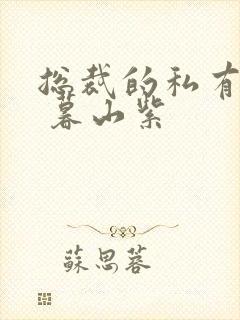 总裁的私有
暮山紫
蘇思蓉